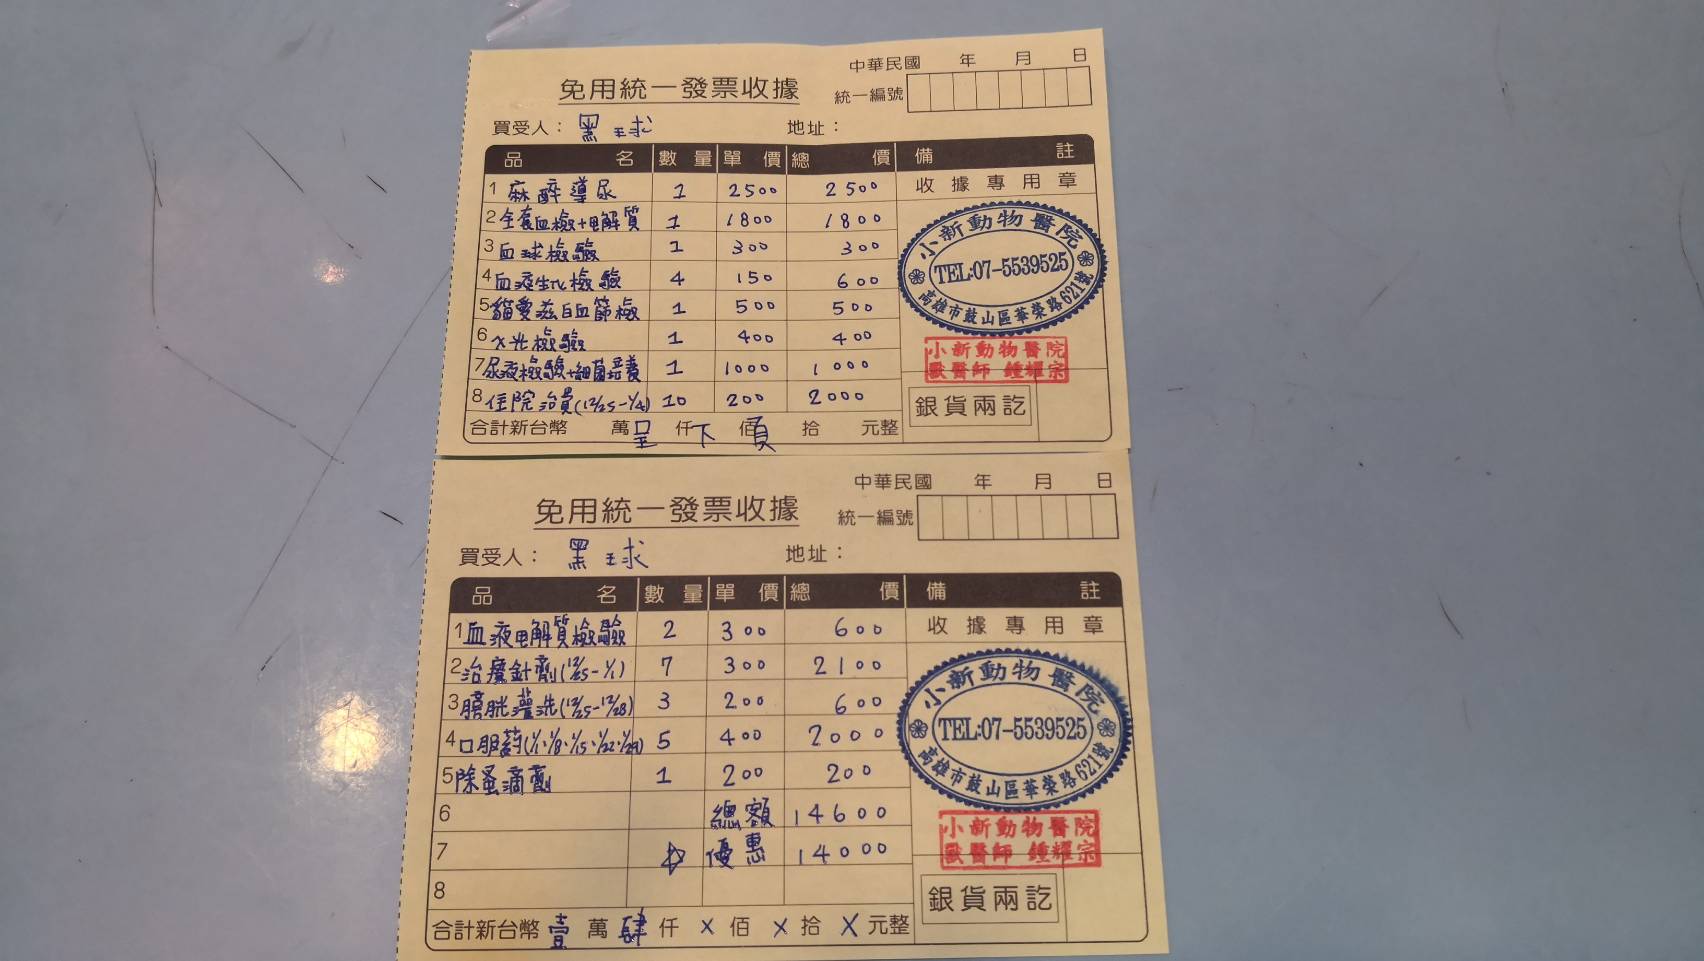 中華民國 年 月 日
免用統一發票收據
統一編號
買受人： 黑球 地址：
品名 數量 單價 總價 備註
收據專用章
1 麻醉導尿 1 2500 2500
2 全套血檢+電解質 1 1800 1800
3 血球檢驗 1 300 300
4 血液生化檢驗 4 150 600
5 貓愛滋白血篩檢 1 500 500
6 X光檢驗 1 400 400
7 尿液檢驗+細菌培養 1 1000 1000
8 住院治費(12/25-1/4) 10 200 2000
小新動物醫院
TEL:07-5539525
高雄市鼓山區華榮路621號
小新動物醫院
獸醫師 鍾耀宗
銀貨兩訖
合計新台幣 萬 仟 佰 拾 元整
呈下頁
中華民國 年 月 日
免用統一發票收據
統一編號
買受人： 黑球 地址：
品名 數量 單價 總價 備註
收據專用章
1 血液电解質檢驗 2 300 600
2 治療針劑(12/25-1/1) 7 300 2100
3 膀胱灌洗(12/25-12/28) 3 200 600
4 口服葯(1/1、1/8、1/15、1/22、1/29) 5 400 2000
5 除蚤滴劑 1 200 200
6 總額 14600
7 優惠 14000
8
小新動物醫院
TEL:07-5539525
高雄市鼓山區華榮路621號
小新動物醫院
獸醫師 鍾耀宗
銀貨兩訖
合計新台幣 壹 萬 肆 仟 X 佰 X 拾 X 元整